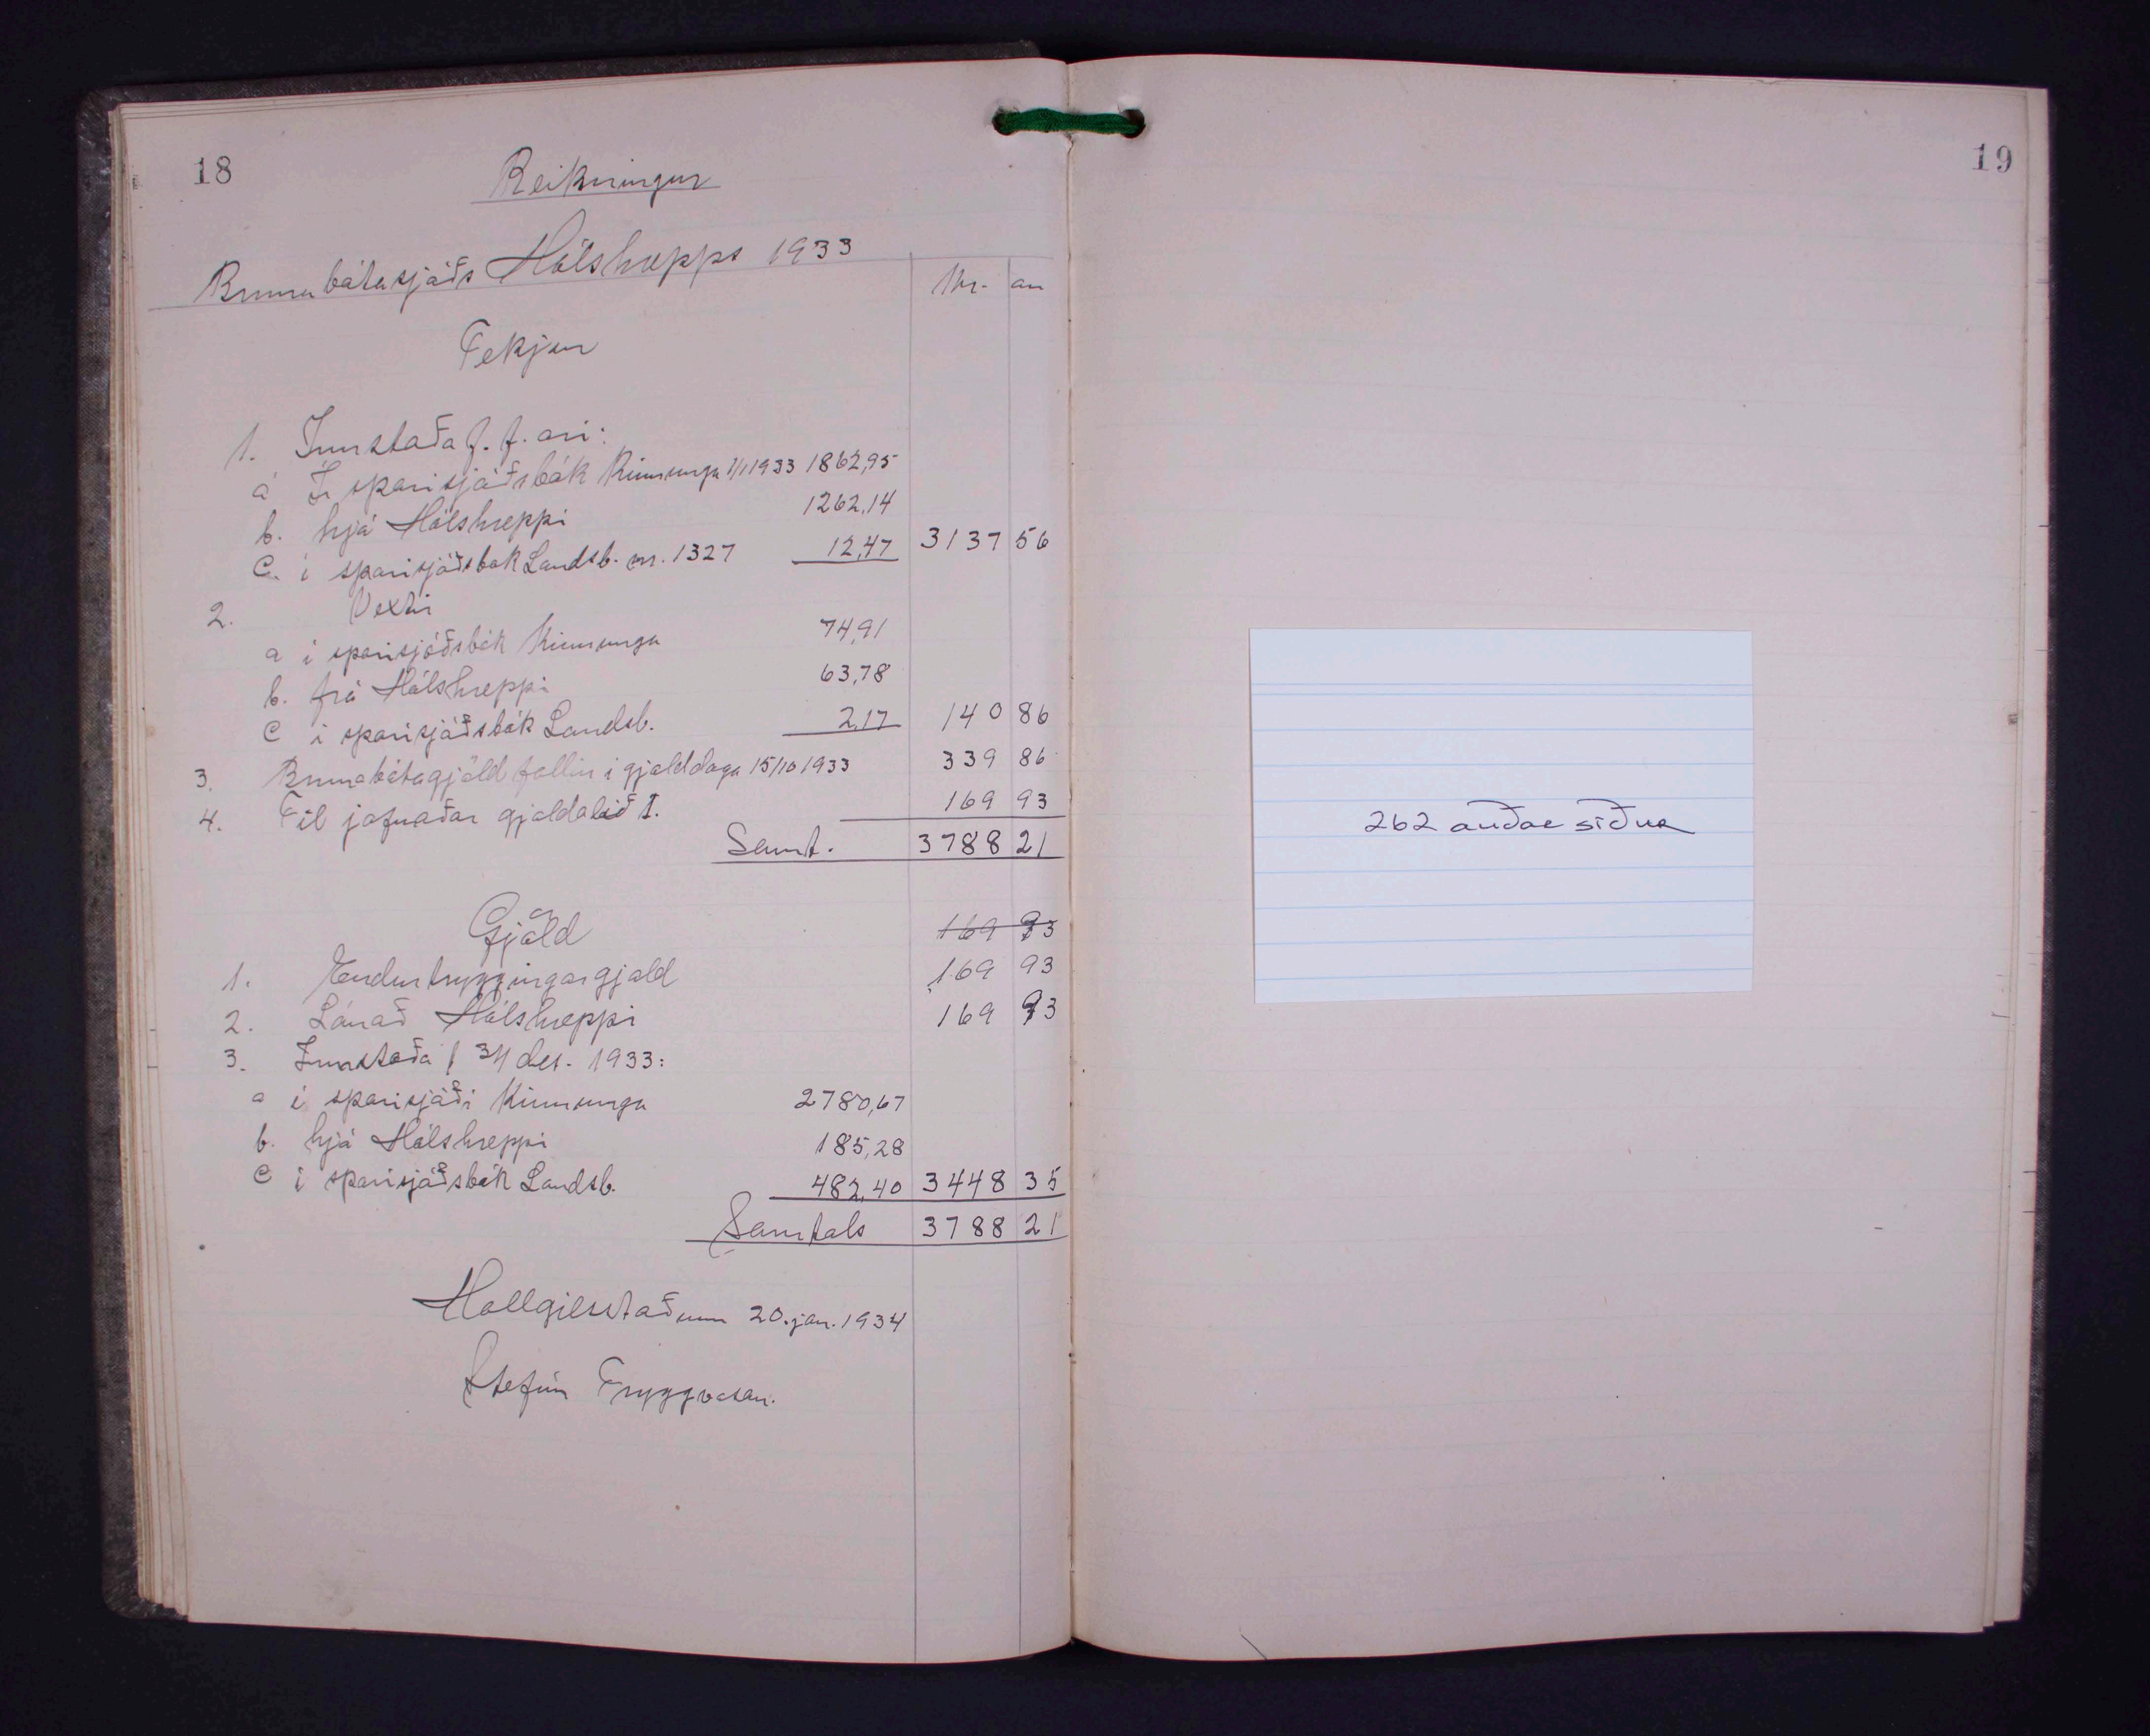 18
Reikningur
Brunabótasjóðs Hálshrepps 1933
Kr. au
Tekjur
1. Innstæða f. f. ári:
a Í sparisjóðsbók Kinnunga 1/1 1933 1862,95
b. hjá Hálshreppi 1262,14
c. í sparisjóðsbók Landsb. nr. 1327 12,47 3137 56
2. Vextir
a í sparisjóðsbók Kinnunga 74,91
b. frá Hálshreppi 63,78
c í sparisjóðsbók Landsb. 2,17 140 86
3. Brunabótagjöld fallin í gjalddaga 15/10 1933 339 86
4. Til jafnaðar gjaldalið I. 169 93
Samt. 3788 21
Gjöld 169 93
1. Endurtryggingargjald 169 93
2. Lánað Hálshreppi 169 93
3. Innstæða 31 des. 1933:
a í sparisjóði Kinnunga 2780,67
b. hjá Hálshreppi 185,28
c í sparisjóðsbók Landsb. 482,40 3448 35
Samtals 3788 21
Hallgilsstöðum 20. jan. 1934
Stefán Tryggvason.
19
262 auðar síður